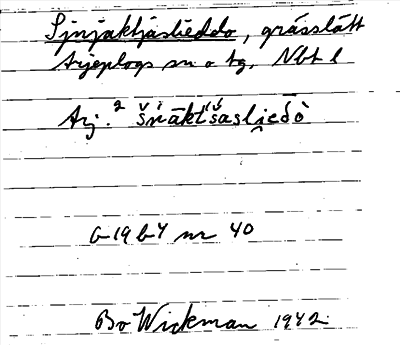 Sjnjaktjaslieddo, grässlätt
Arjeplogs sn o tg, Nbt l
Arj. ² šńāktšasliẹdò
G 19 b 4 nr 40
Bo Wickman 1942